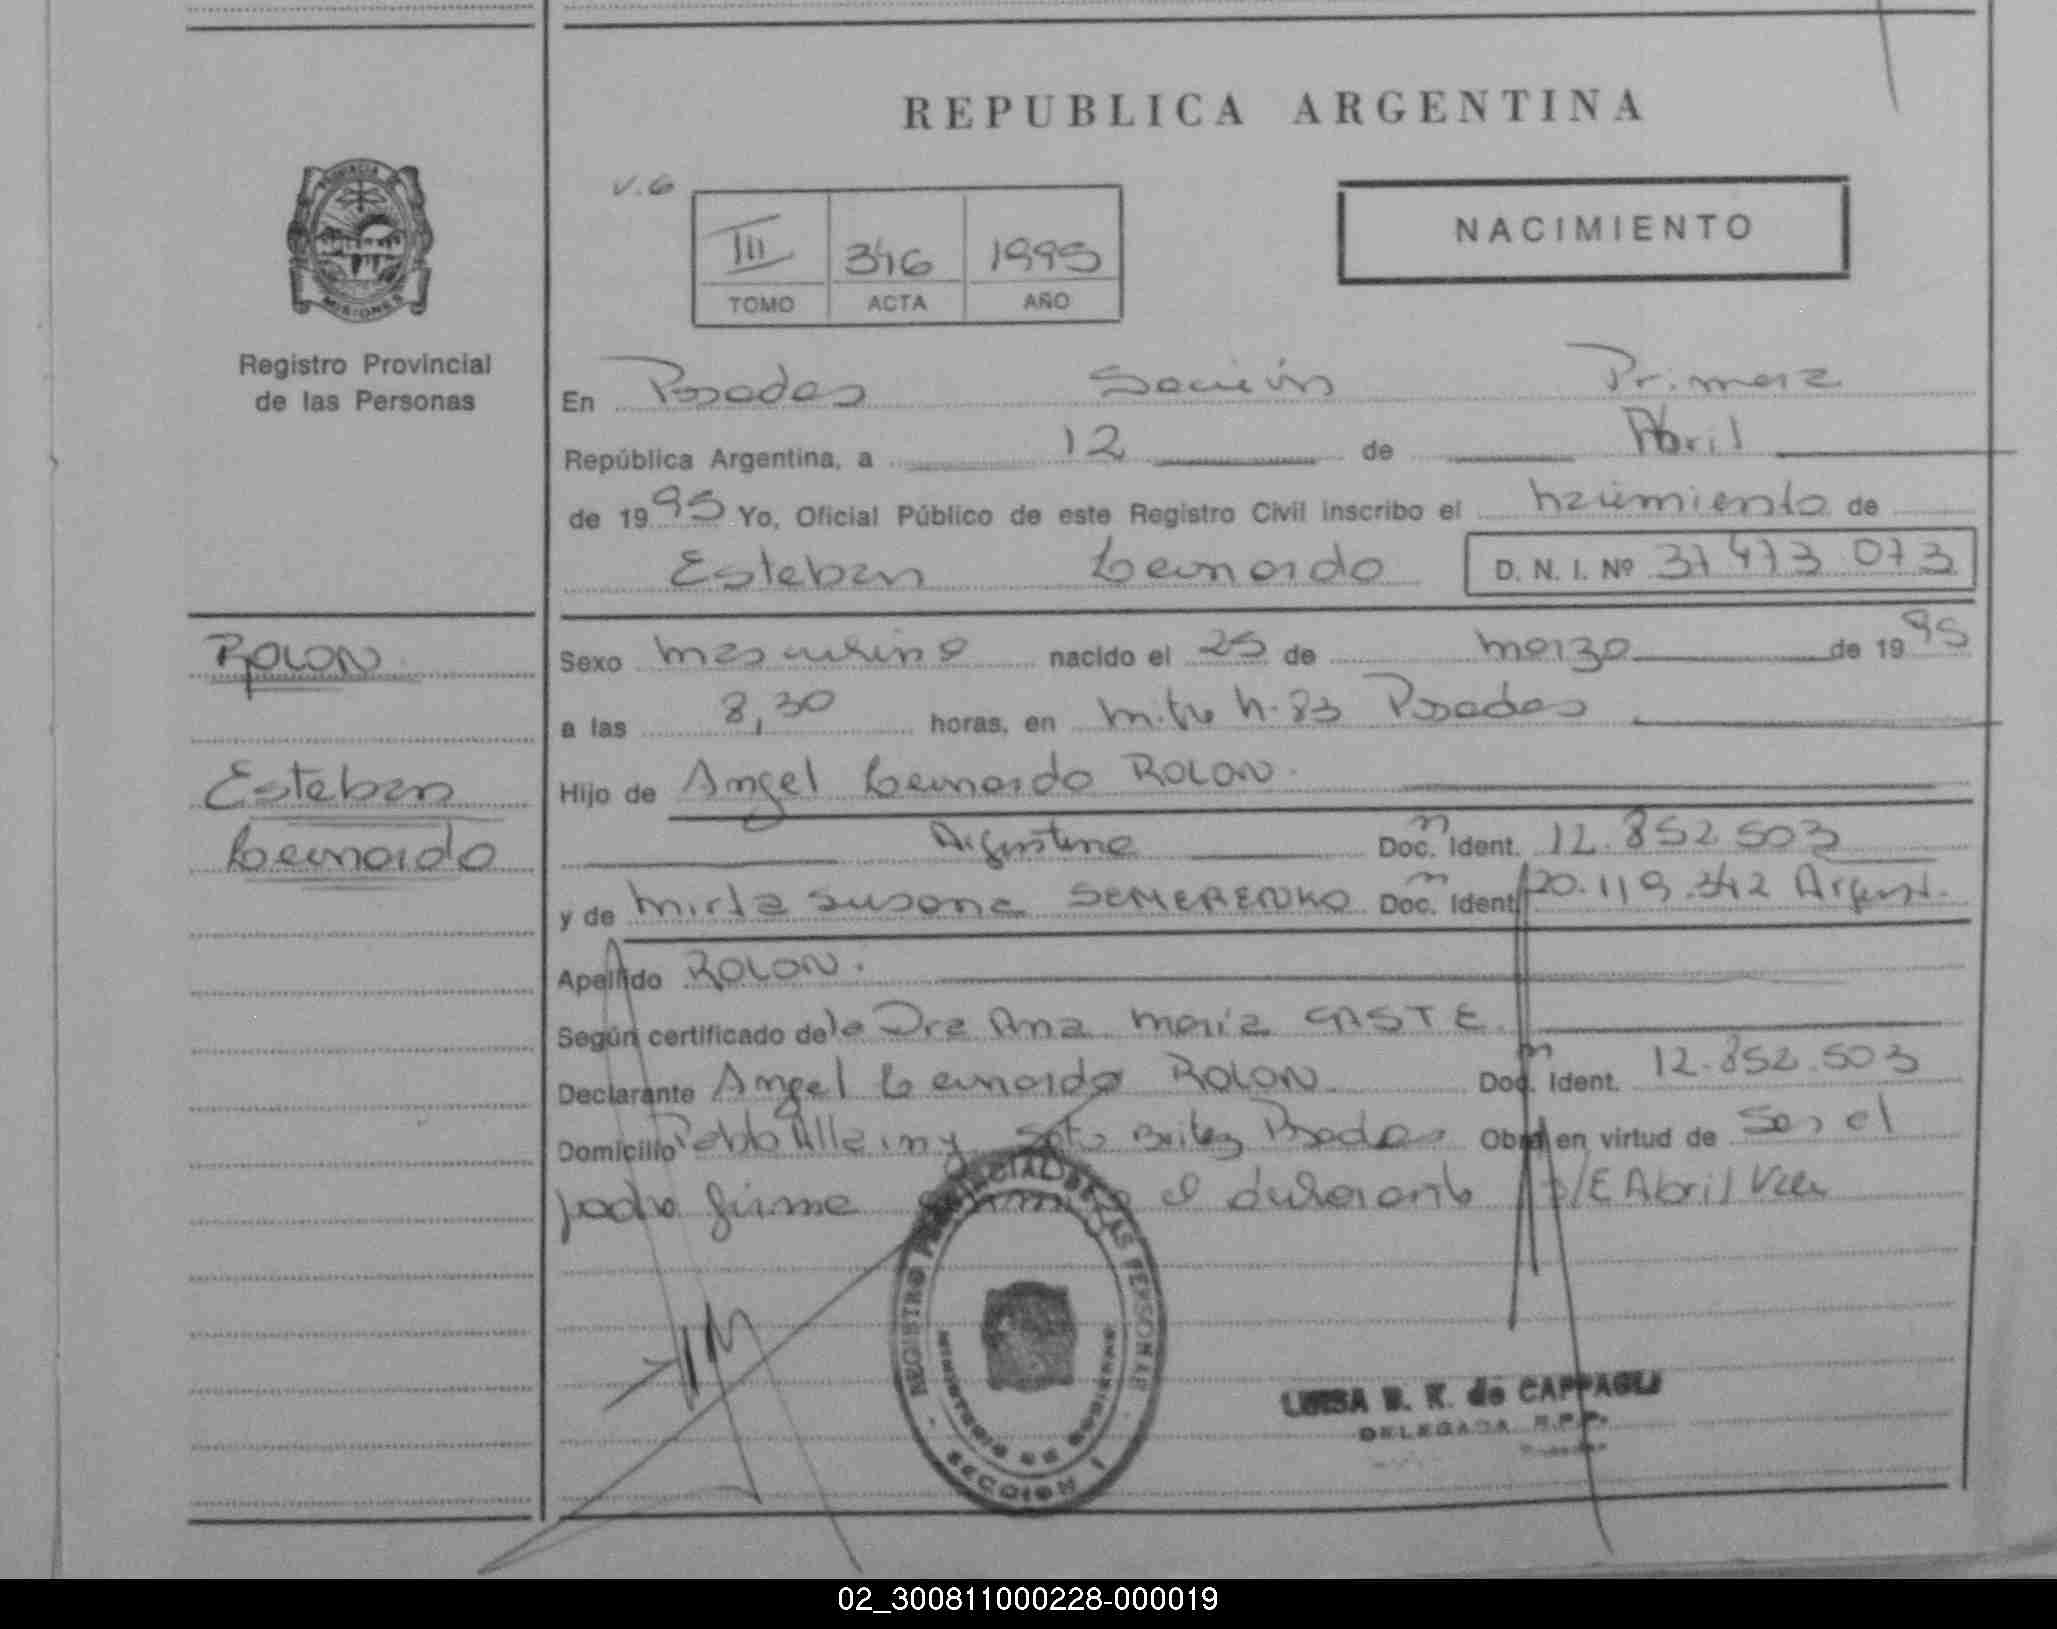 REPUBLICA ARGENTINA
V.6
III 346 1995
TOMO ACTA AÑO
NACIMIENTO
MISIONES
Registro Provincial
de las Personas
En Posadas Sección Primera
República Argentina, a 12 de Abril
de 1995 Yo, Oficial Público de este Registro Civil inscribo el nacimiento de
Esteban Leonardo D. N. I. Nº 37 473 073
ROLON
Esteban
Leonardo
Sexo masculino nacido el 25 de marzo de 1995
a las 8,30 horas, en Posadas
Hijo de Angel Leonardo ROLON.
Argentino Doc. Ident. 12.852 503
y de Mirta Susana SEMERENKO Doc. Ident. 20.119.342 Argent.
Apellido ROLON.
Según certificado de la Dra Ana María CASTE
Declarante Angel Leonardo ROLON Doc. Ident. 12.852.503
Domicilio Pablo Allain y Soto Britez Posadas Obra en virtud de Ser el
padre firma el declarante S/E Abril Vale
REGISTRO PROVINCIAL DE LAS PERSONAS
MINISTERIO DE GOBIERNO
SECCION 1
LUISA B. K. de CAPPAGLI
DELEGADA R.P.P.
Posadas
02_300811000228-000019